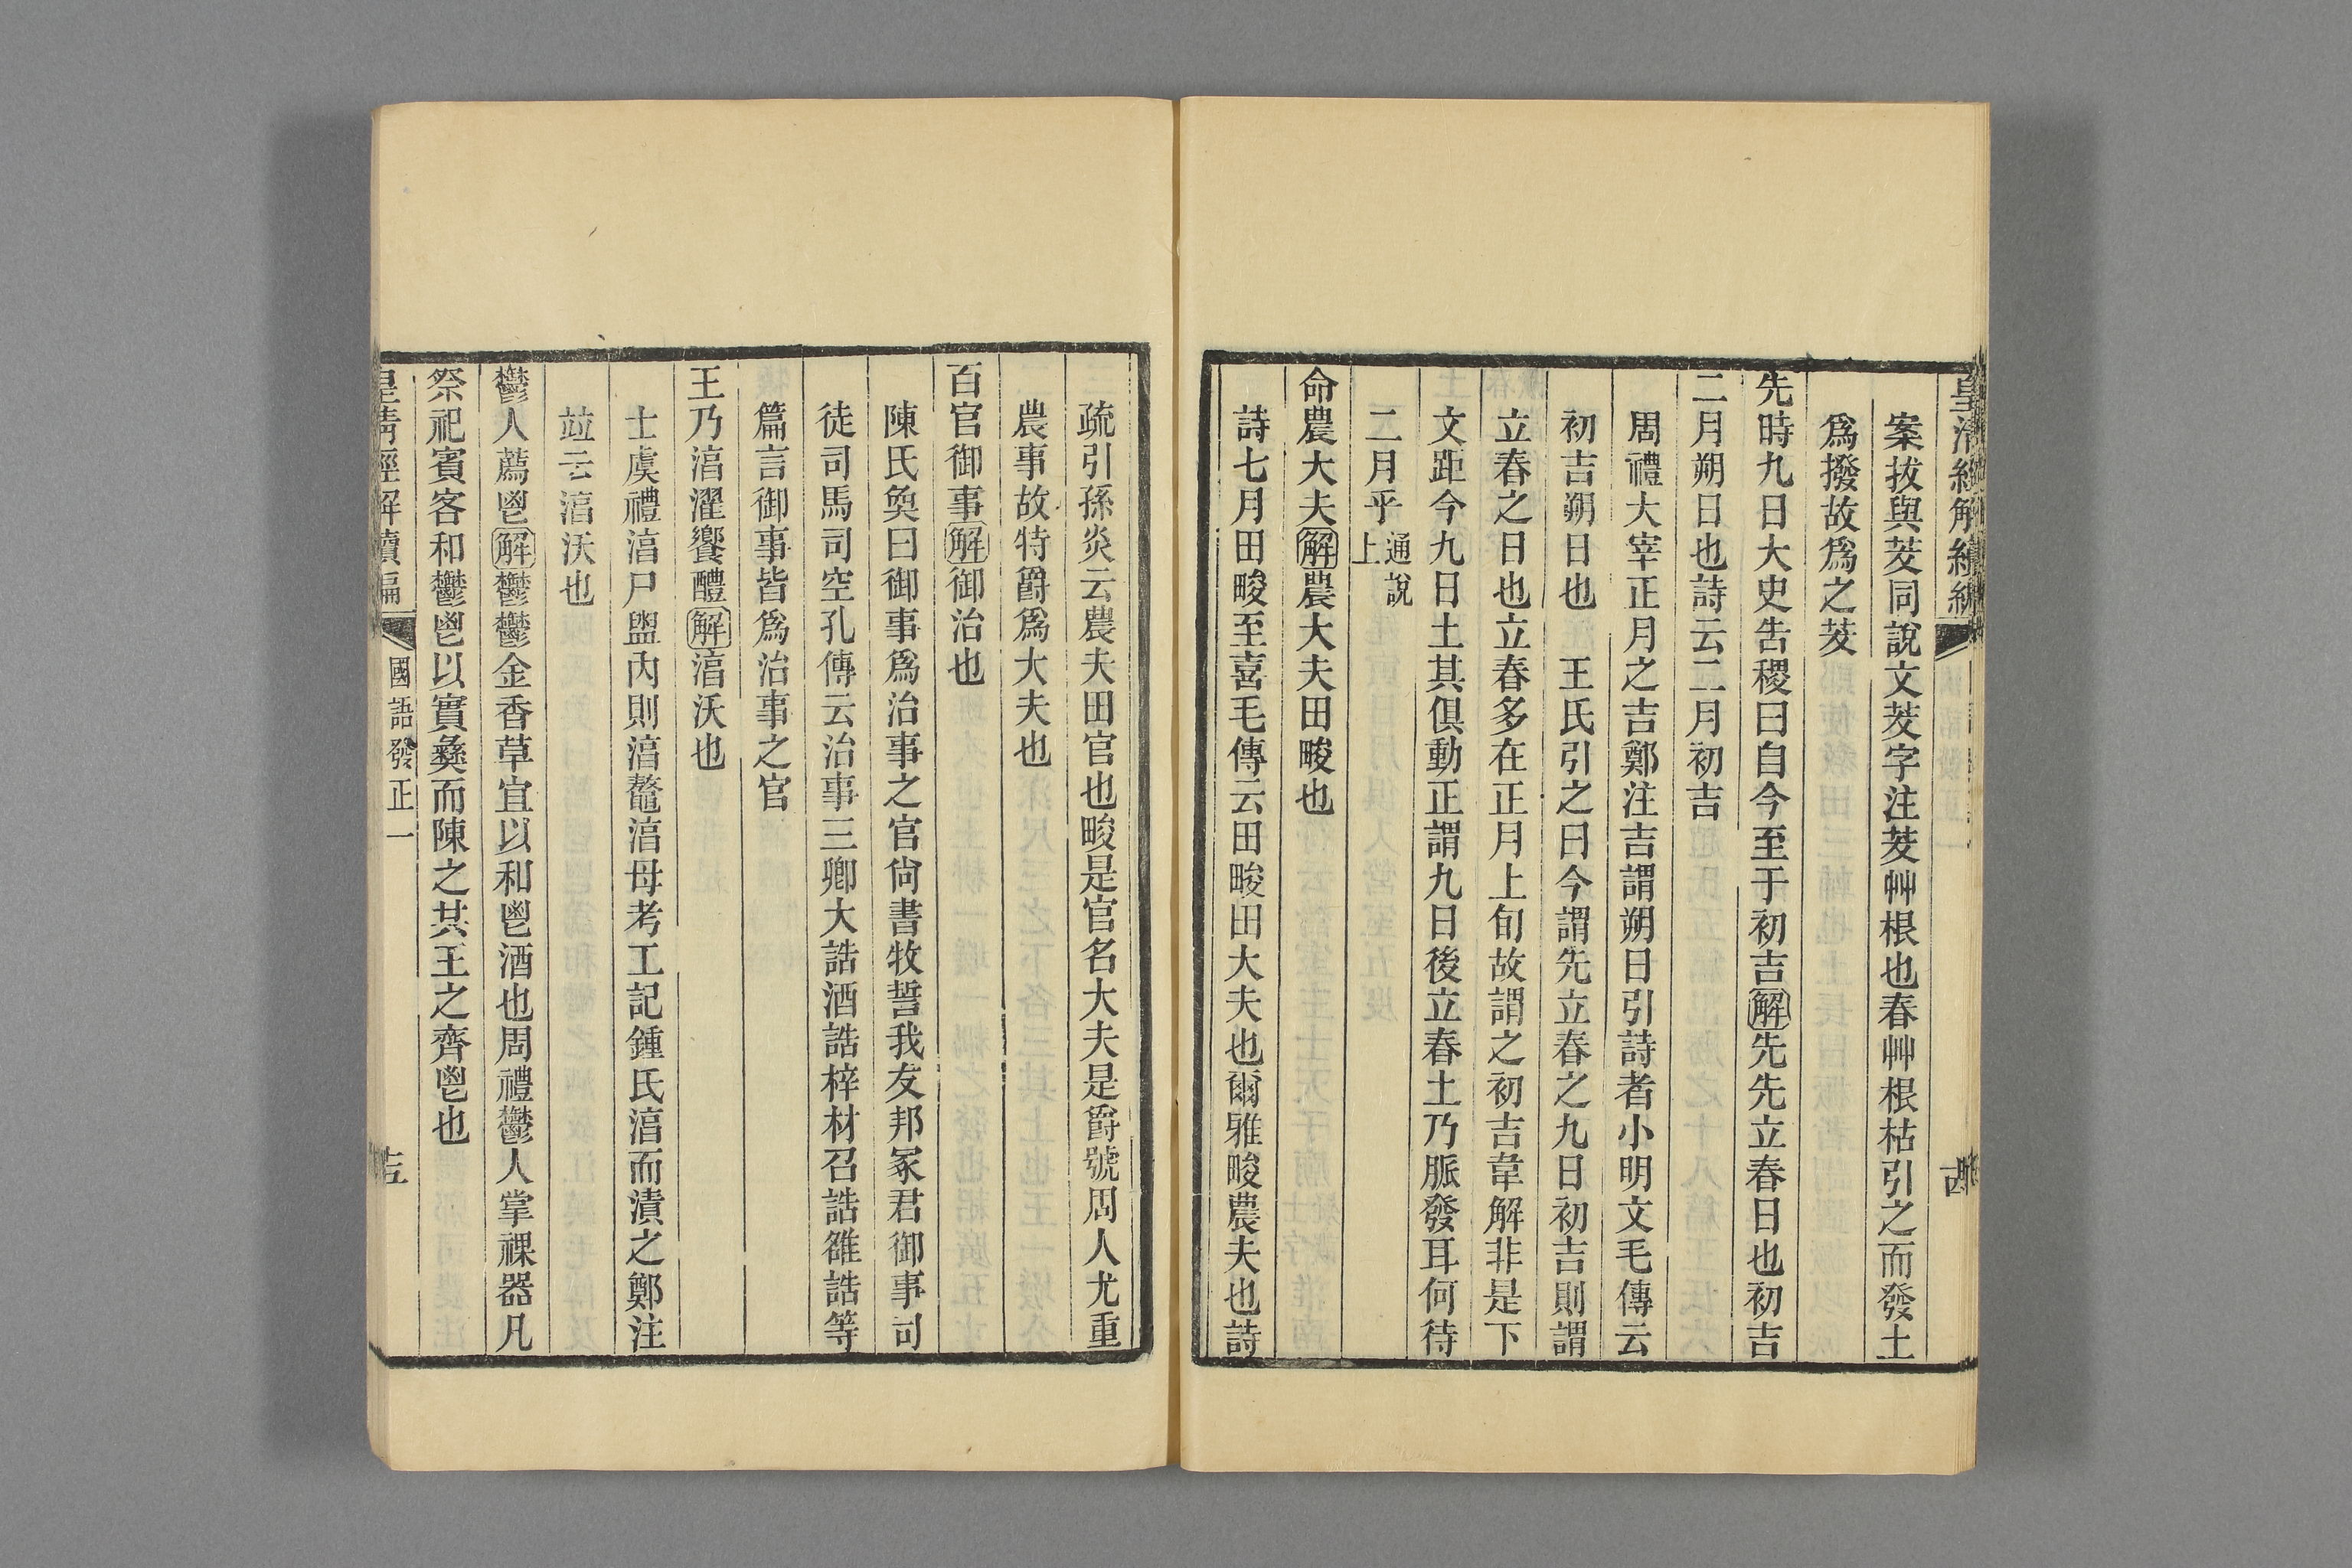 案拔與茇同說文茇字注茇艸根也春艸根枯引之而發土
爲撥故爲之茇
先時九日大史告稷曰自今至于初吉解先先立春日也初吉
二月朔日也詩云二月初吉
周禮大宰正月之吉鄭注吉謂朔日引詩者小明文毛傳云
初吉朔日也 王氏引之曰今謂先立春之九日初吉則謂
立春之日也立春多在正月上旬故謂之初吉韋解非是下
文距今九日土其俱動正謂九日後立春土乃脈發耳何待
二月乎通說上
命農大夫解農大夫田畯也
詩七月田畯至喜毛傳云田畯田大夫也爾雅畯農夫也詩
疏引孫炎云農夫田官也畯是官名大夫是爵號周人尤重
農事故特爵爲大夫也
百官御事解御治也
陳氏奐曰御事爲治事之官尙書牧誓我友邦冢君御事司
徒司馬司空孔傳云治事三卿大誥酒誥梓材召誥雒誥等
篇言御事皆爲治事之官
王乃湻濯饗醴解湻沃也
士虞禮湻尸盥內則湻熬湻母考工記鍾氏湻而漬之鄭注
竝云湻沃也
鬱人薦鬯解鬱鬱金香草宜以和鬯酒也周禮鬱人掌祼器凡
祭祀賓客和鬱鬯以實彝而陳之共王之齊鬯也
皇清經解續編 國語發正一